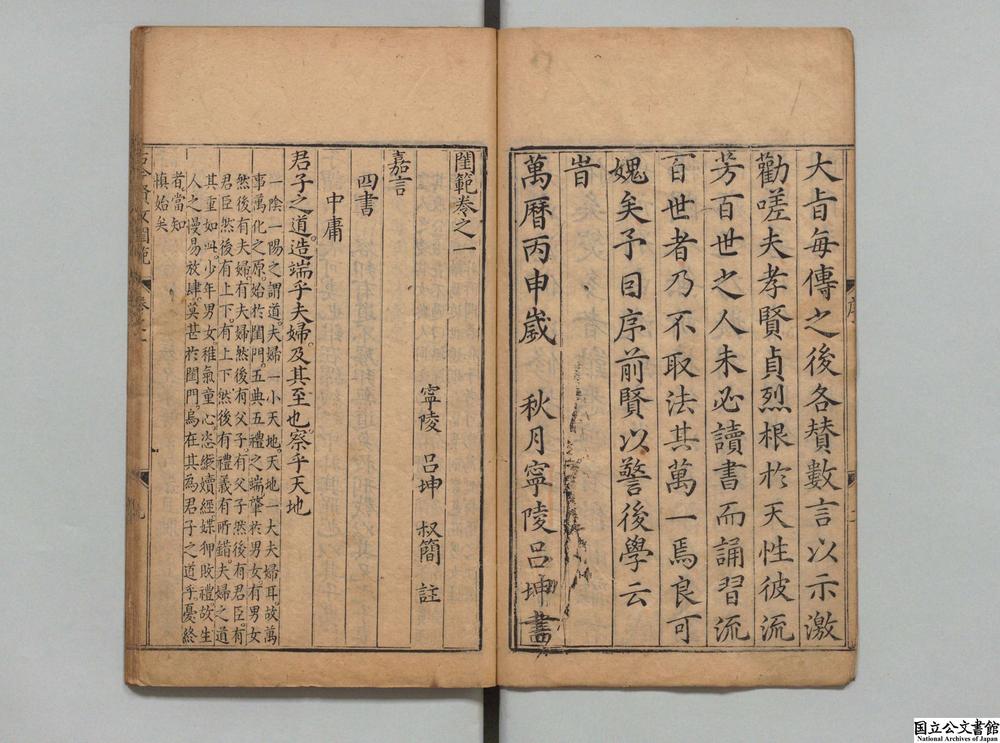 大㫖每傳之後各賛數言以示激
勸嗟夫孝賢貞烈根於天性彼流
芳百世之人未必讀書而誦習流
百世者乃不取法其萬一焉良可
媿矣予曰序前賢以警後學云
旹
萬曆丙申歲 秋月寧陵呂坤書
閨範卷之一
寧陵 呂坤 叔簡 註
嘉言
四書
中庸
君子之道。造端乎夫婦。及其至也。察乎天地
一陰一陽之謂道。夫婦一小天地。天地一大夫婦耳。故萬
事萬化之原。始於閨門。五典五禮之端。肇於男女。有男女
然後有夫婦。有夫婦然後有父子。有父子然後有君臣。有
君臣然後有上下。有上下然後有禮義有所錯。夫婦之道
其重如此。少年男女稚氣童心恣縱凟經媟狎敗禮。故生
人之漫易放肆。莫甚於閨門。烏在其為君子之道乎。憂終
者。當知
慎始矣
序
閨範
國立公文書館
National Archives of Japan